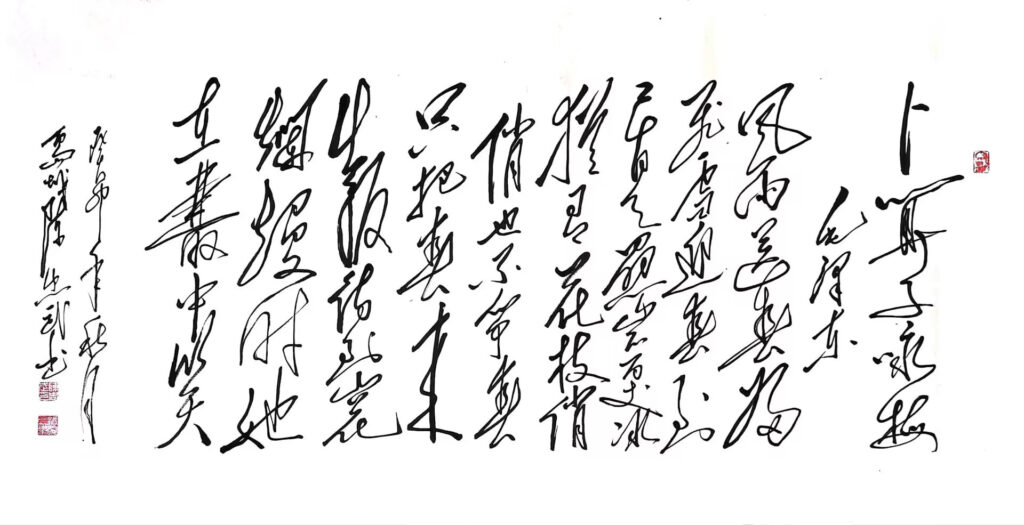 卜算子咏梅
毛泽东
风雨送春归
飞雪迎春到
已是悬崖百丈冰
犹有花枝俏
俏也不争春
只把春来
报待到山花
烂漫时她
在丛中笑
癸卯年秋月
禹城陈武书